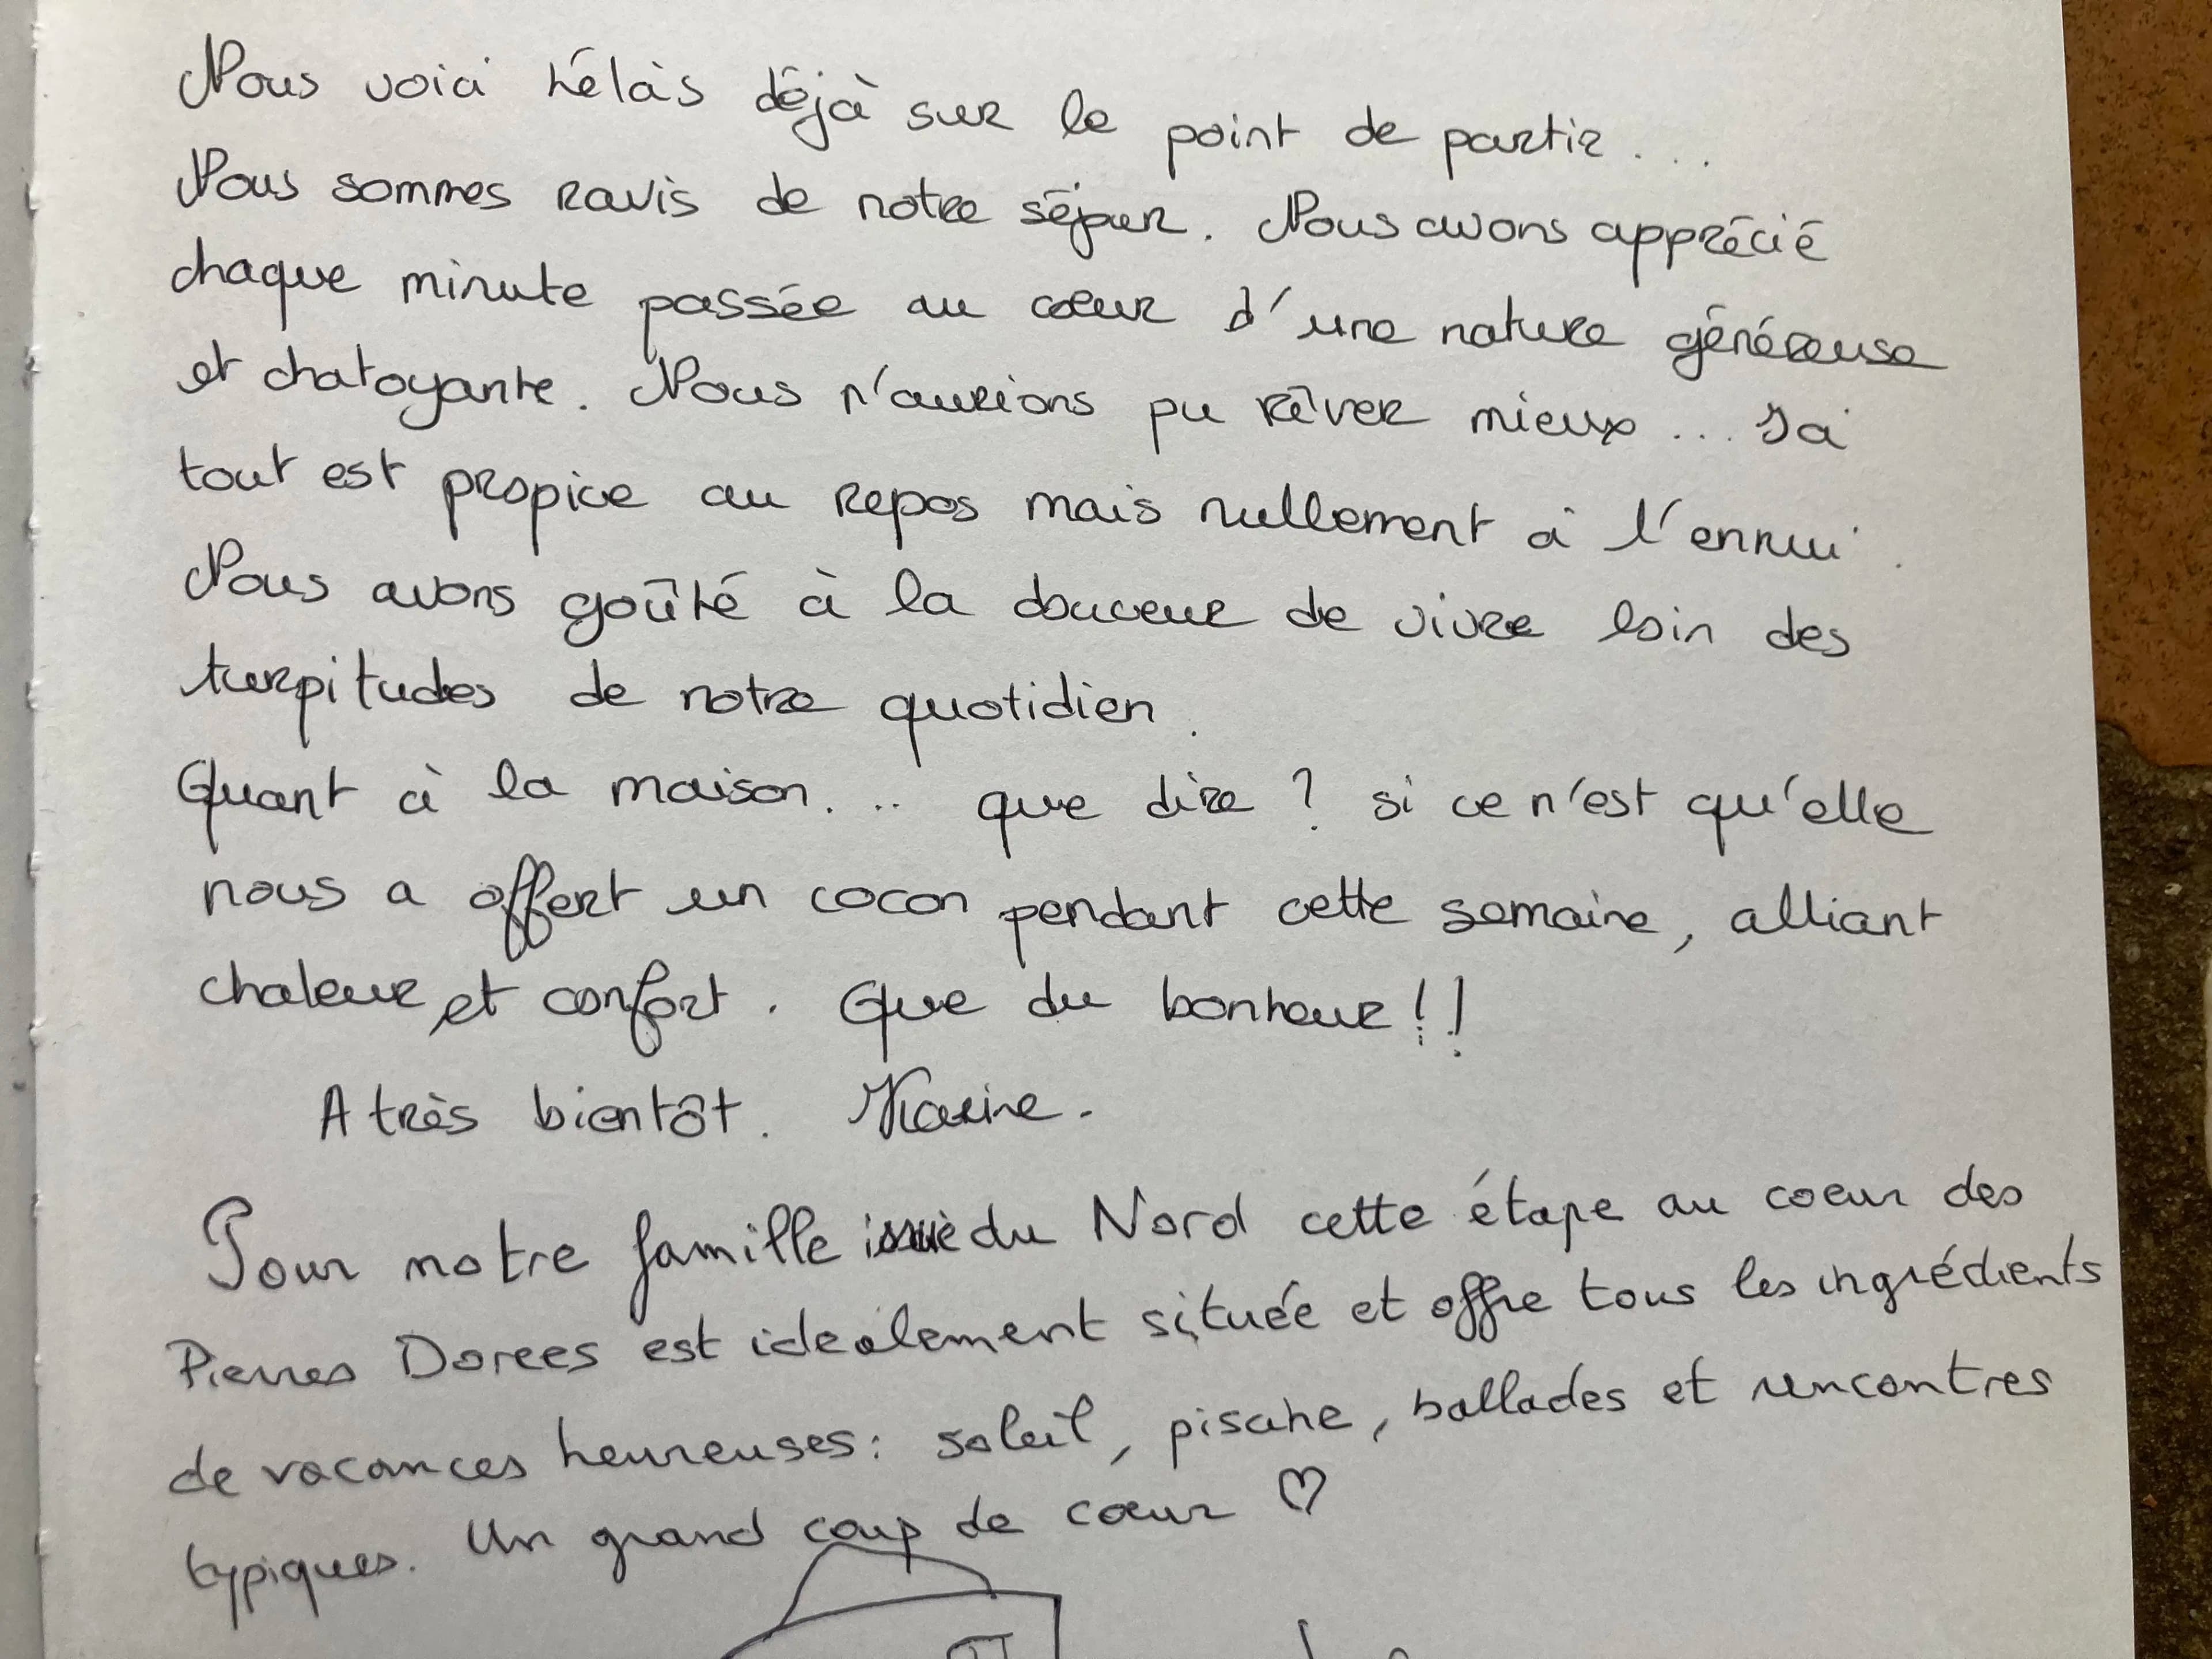 Nous voici hélàs déjà sur le point de partir...
Nous sommes ravis de notre séjour. Nous avons apprécié
chaque minute passée au cœur d'une nature généreuse
et chatoyante. Nous n'aurions pu rêver mieux... Ici
tout est propice au repos mais nullement à l'ennui.
Nous avons goûté à la douceur de vivre loin des
turpitudes de notre quotidien.
Quant à la maison... que dire ? si ce n'est qu'elle
nous a offert un cocon pendant cette semaine, alliant
chaleur et confort. Que du bonheur !!
A très bientôt. Karine.
Pour notre famille issue du Nord cette étape au coeur des
Pierres Dorees est idéalement située et offre tous les ingrédients
de vacances heureuses : soleil, piscine, ballades et rencontres
typiques. Un grand coup de cœur ♡